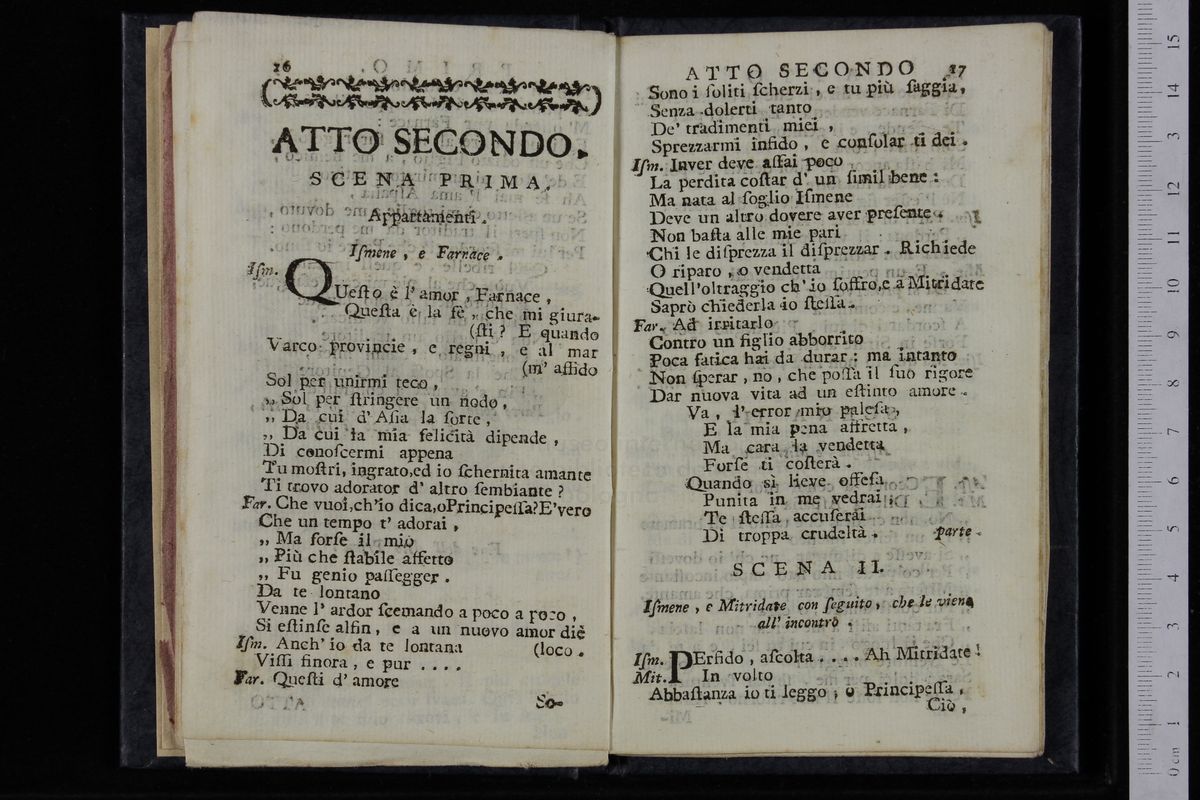 26
ATTO SECONDO.
SCENA PRIMA.
Appartamenti.
Iſmene, e Farnace.
Iſm. QUeſto è l'amor, Farnace,
Queſta è la fè, che mi giura-
(ſti? E quando
Varco provincie, e regni, e al mar
(m' affido
Sol per unirmi teco,
„ Sol per ſtringere un nodo,
„ Da cui d' Aſia la ſorte,
„ Da cui la mia felicità dipende,
Di conoſcermi appena
Tu moſtri, ingrato,ed io ſchernita amante
Ti trovo adorator d' altro ſembiante?
Far. Che vuoi,ch'io dica,oPrincipeſſa?E'vero
Che un tempo t' adorai,
„ Ma forſe il mio
„ Più che ſtabile affetto
„ Fu genio paſſegger.
Da te lontano
Venne l' ardor ſcemando a poco a poco,
Si eſtinſe alfin, e a un nuovo amor diè
Iſm. Anch' io da te lontana (loco.
Viſſi finora, e pur ....
Far. Queſti d' amore
So-
ATTO SECONDO 27
Sono i ſoliti ſcherzi, e tu più ſaggia,
Senza dolerti tanto
De' tradimenti miei,
Sprezzarmi infido, e conſolar ti dei.
Iſm. Inver deve aſſai poco
La perdita coſtar d' un ſimil bene:
Ma nata al ſoglio Iſmene
Deve un altro dovere aver preſente.
Non baſta alle mie pari
Chi le diſprezza il diſprezzar. Richiede
O riparo, o vendetta
Quell'oltraggio ch'io ſoffro,e a Mitridate
Saprò chiederla io ſteſſa.
Far. Ad irritarlo
Contro un figlio abborrito
Poca fatica hai da durar: ma intanto
Non ſperar, no, che poſſa il ſuo rigore
Dar nuova vita ad un eſtinto amore.
Va, l'error mio paleſa,
E la mia pena affretta,
Ma cara la vendetta
Forſe ti coſterà.
Quando sì lieve offeſa
Punita in me vedrai;
Te ſteſſa accuſerai
Di troppa crudeltà. parte.
SCENA II.
Iſmene, e Mitridate con ſeguito, che le viene
all' incontro.
Iſm. PErfido, aſcolta.... Ah Mitridate!
Mit. In volto
Abbaſtanza io ti leggo, o Principeſſa,
Ciò,